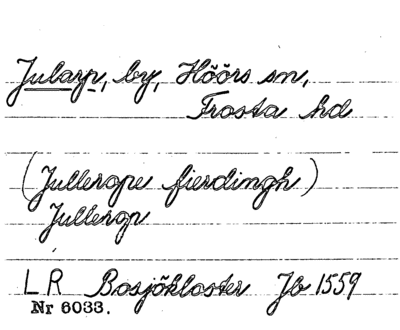 Jularp, by, Höörs sn,
Frosta hd
(Jullerope fierdingh)
Jullerop
LR Bosjökloster Jb 1559
Nr 6033.